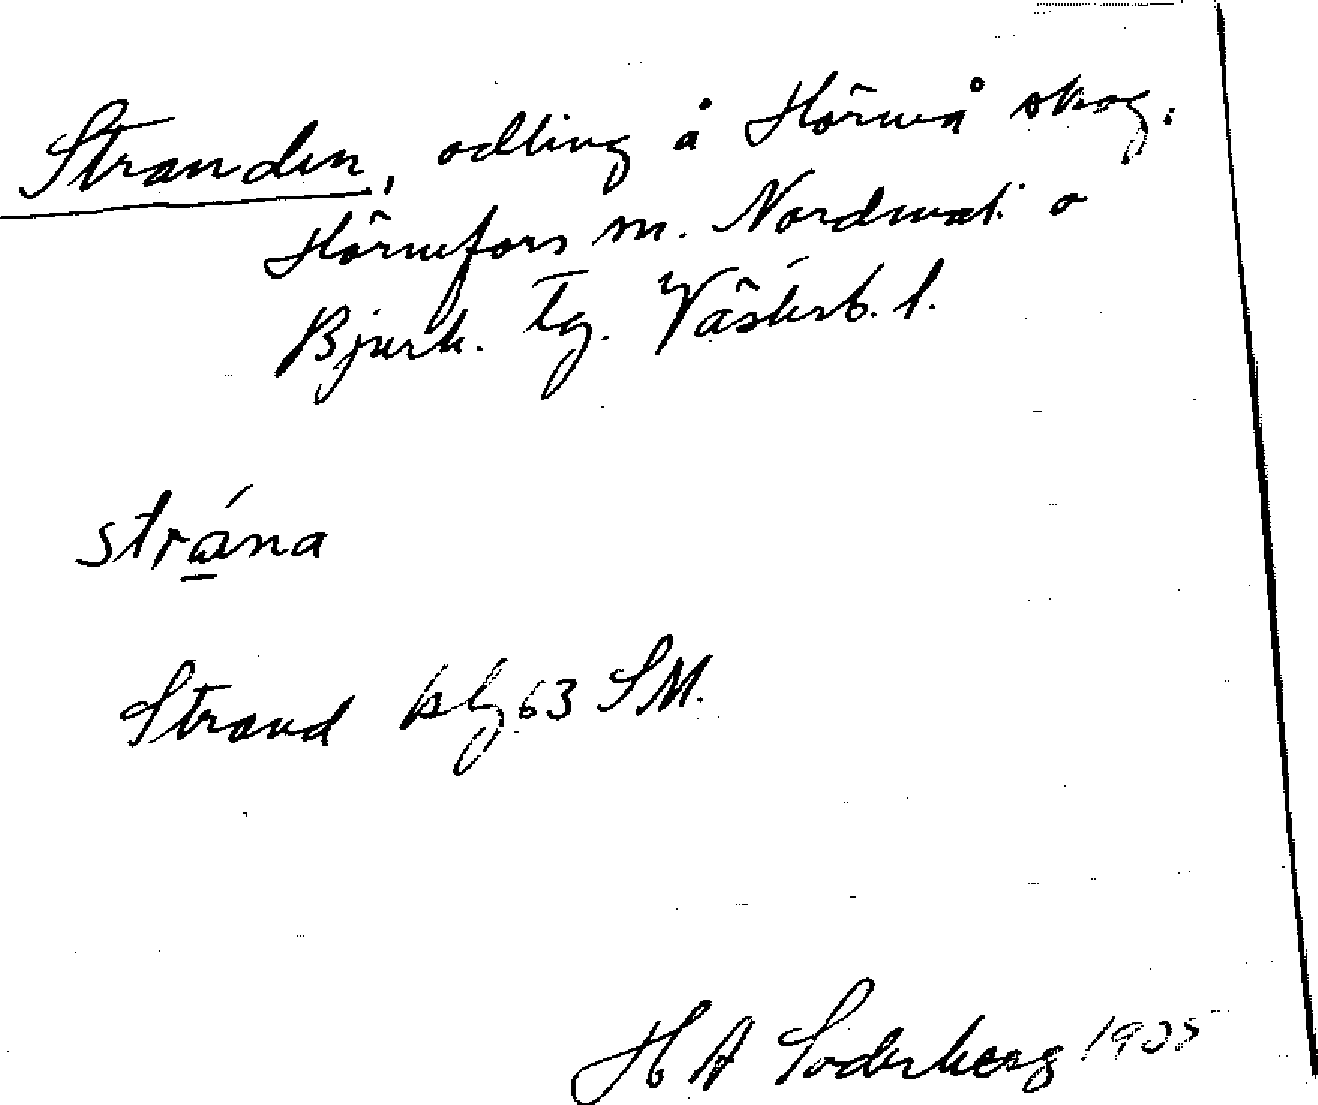 Stranden, odling å Hörneå skog,
Hörnefors m. Nordmal. o
Bjurh. Tg. Västerb. l.
strána
Strand blg 63 SM.
H A Söderberg 1935